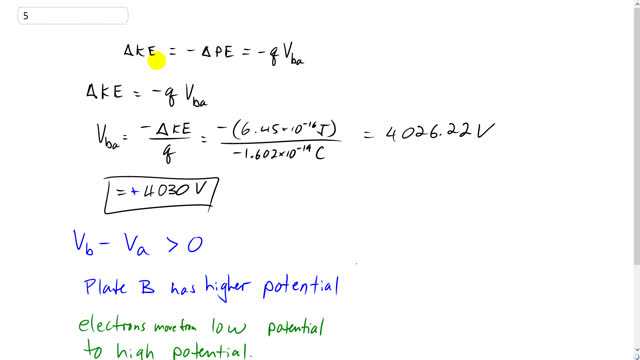 5
ΔKE = -ΔPE = -q V_ba
ΔKE = -q V_ba
V_ba = -ΔKE / q = -(6.45×10^-16 J) / -1.602×10^-19 C = 4026.22 V
= +4030 V
V_b - V_a > 0
Plate B has higher potential
electrons move from low potential
to high potential.